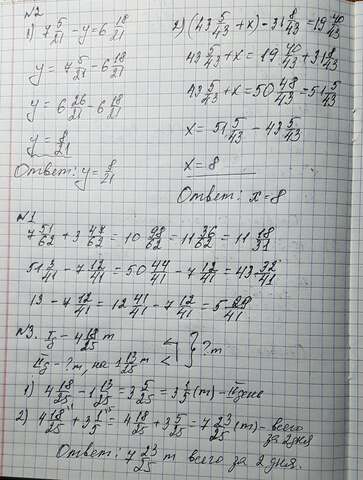 №2
1) 7 5/21 - y = 6 18/21
y = 7 5/21 - 6 18/21
y = 6 26/21 - 6 18/21
y = 8/21
Ответ: y = 8/21
2) (43 5/43 + x) - 31 8/43 = 19 40/43
43 5/43 + x = 19 40/43 + 31 8/43
43 5/43 + x = 50 48/43 = 51 5/43
x = 51 5/43 - 43 5/43
x = 8
Ответ: x = 8
№1
7 51/62 + 3 47/62 = 10 98/62 = 11 36/62 = 11 18/31
51 3/41 - 7 12/41 = 50 44/41 - 7 12/41 = 43 32/41
13 - 7 12/41 = 12 41/41 - 7 12/41 = 5 29/41
№3. I д - 4 18/25 т
II д - ? т, на 1 13/25 т < } ? т
1) 4 18/25 - 1 13/25 = 3 5/25 = 3 1/5 (т) - II день
2) 4 18/25 + 3 1/5 = 4 18/25 + 3 5/25 = 7 23/25 (т) - всего
за 2 дня
Ответ: 7 23/25 т всего за 2 дня.